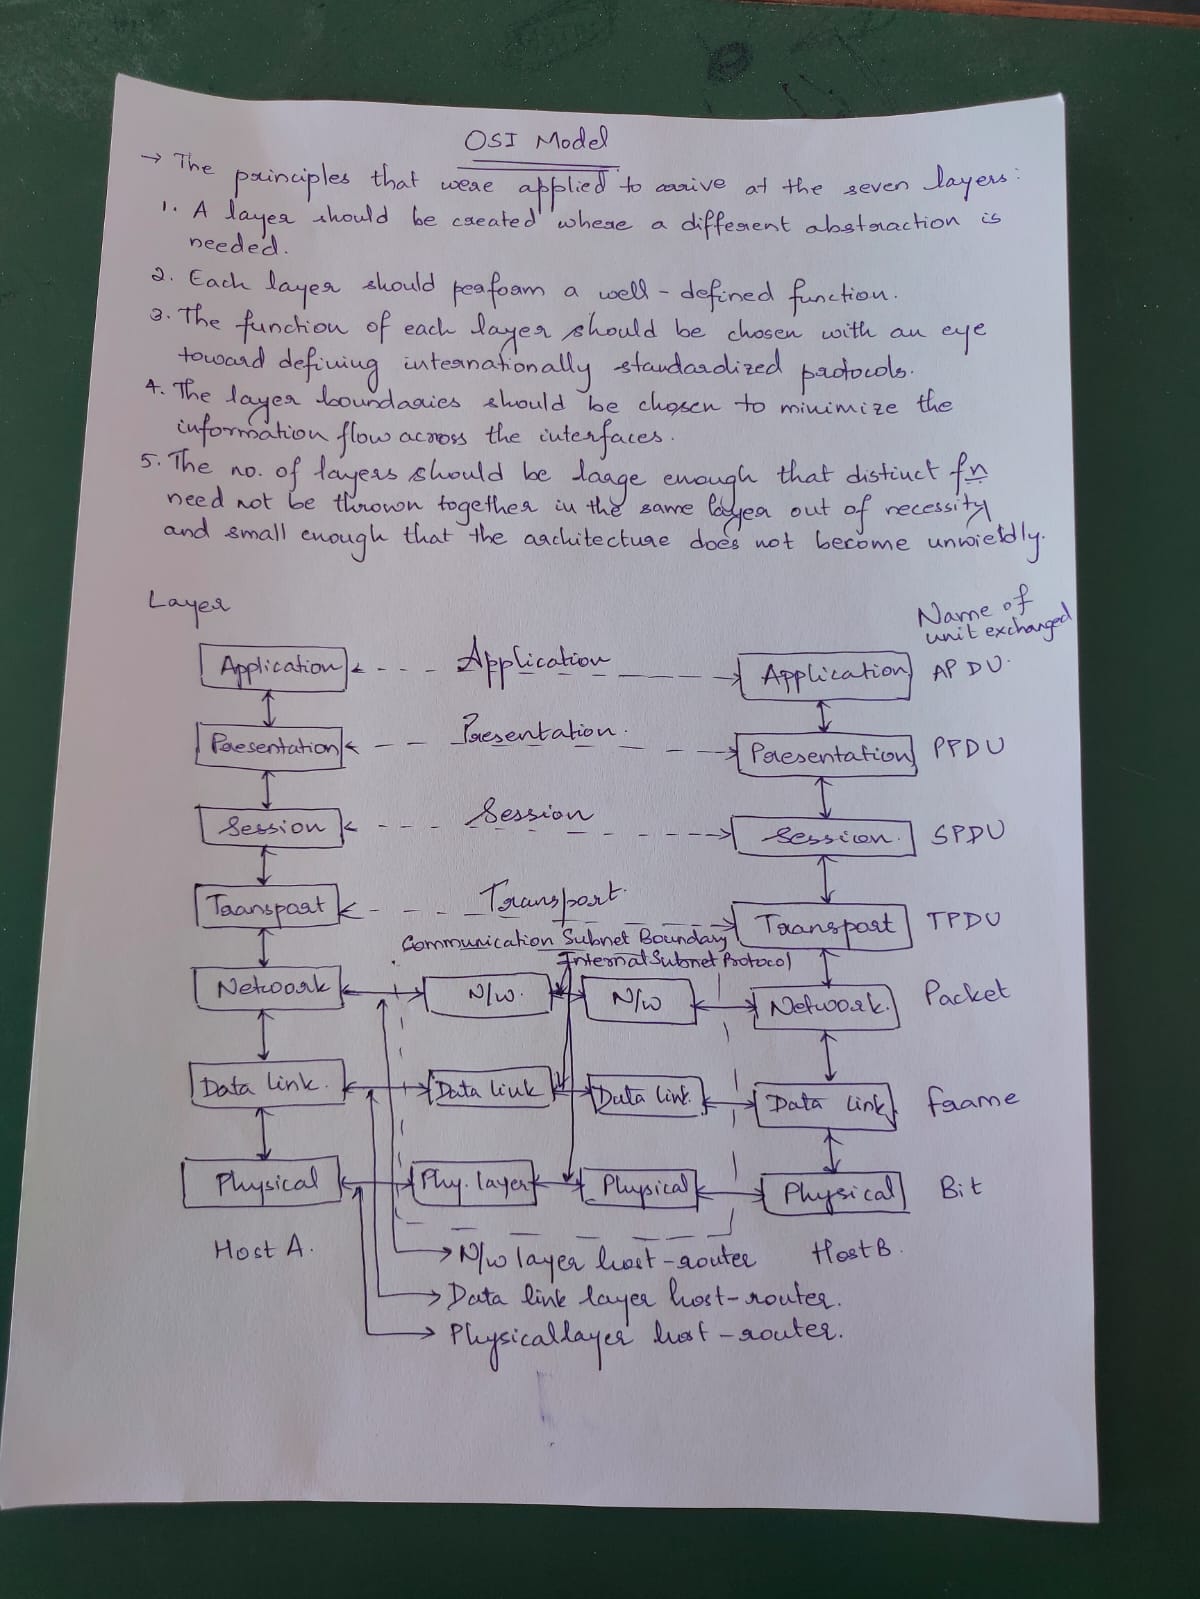 OSI Model
→ The principles that were applied to arrive at the seven layers:
1. A layer should be created where a different abstraction is
needed.
2. Each layer should perform a well-defined function.
3. The function of each layer should be chosen with an eye
toward defining internationally standardized protocols.
4. The layer boundaries should be chosen to minimize the
information flow across the interfaces.
5. The no. of layers should be large enough that distinct fn
need not be thrown together in the same layer out of necessity
and small enough that the architecture does not become unwieldly.
Layer
Name of
unit exchanged
Application Application Application APDU.
Presentation Presentation. Presentation PPDU
Session Session Session. SPDU
Transport Transport. Transport TPDU
Communication Subnet Boundary
Internal Subnet Protocol
Network N/w. N/w Network. Packet
Data link. Data link Data link. Data link frame
Physical Phy. layer Physical Physical Bit
Host A. N/w layer host-router Host B.
Data link layer host-router.
Physical layer host-router.